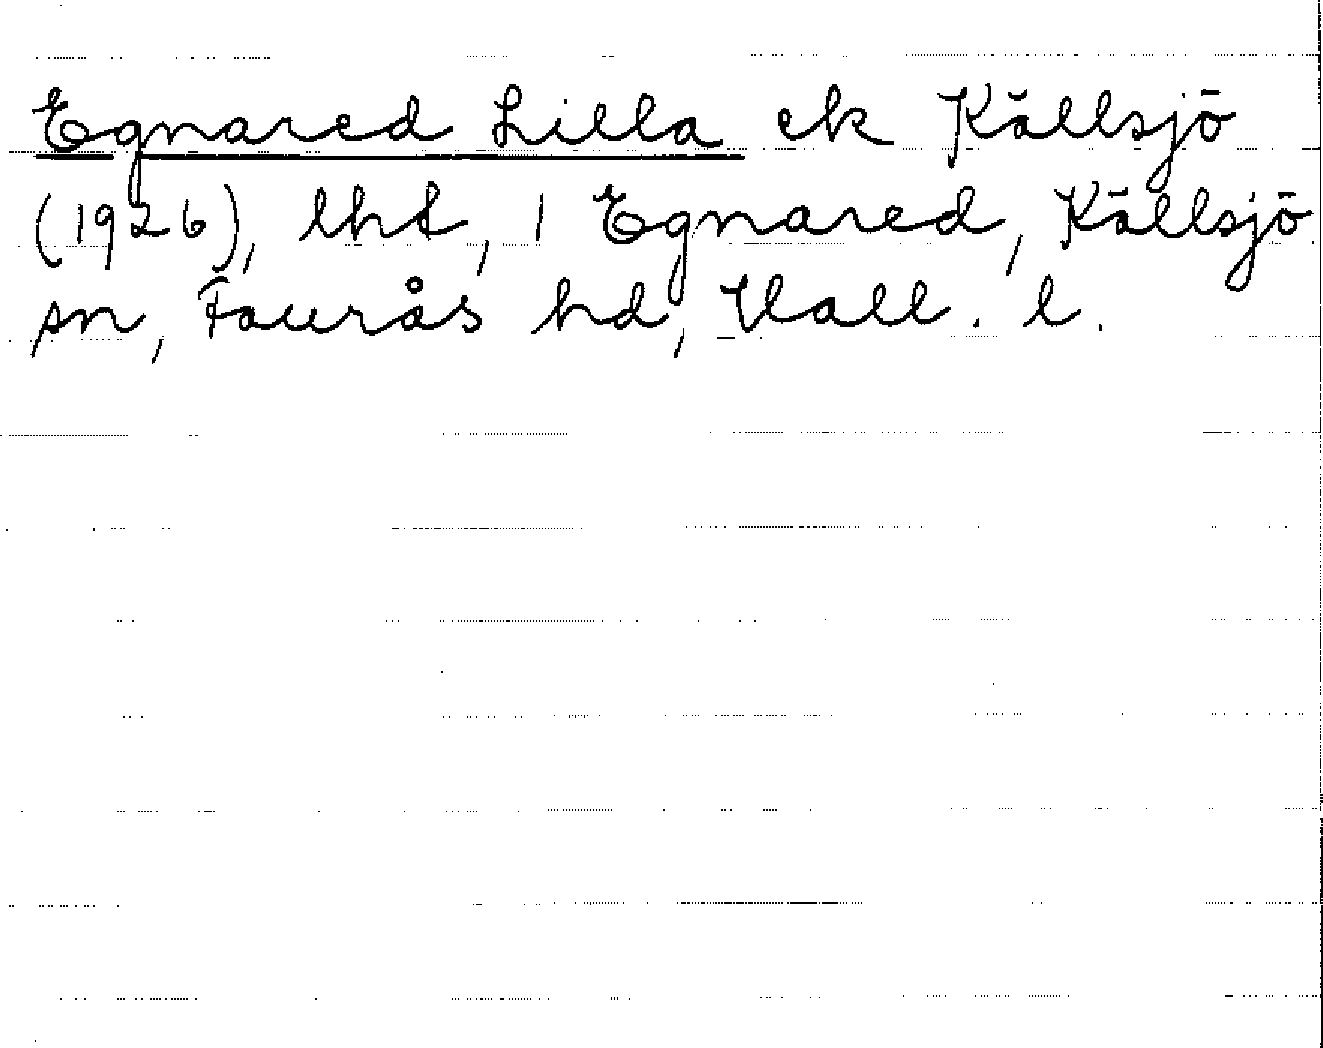 Egnared Lilla ek Källsjö
(1926), lht, 1 Egnared, Källsjö
sn, Faurås hd, Hall. l.